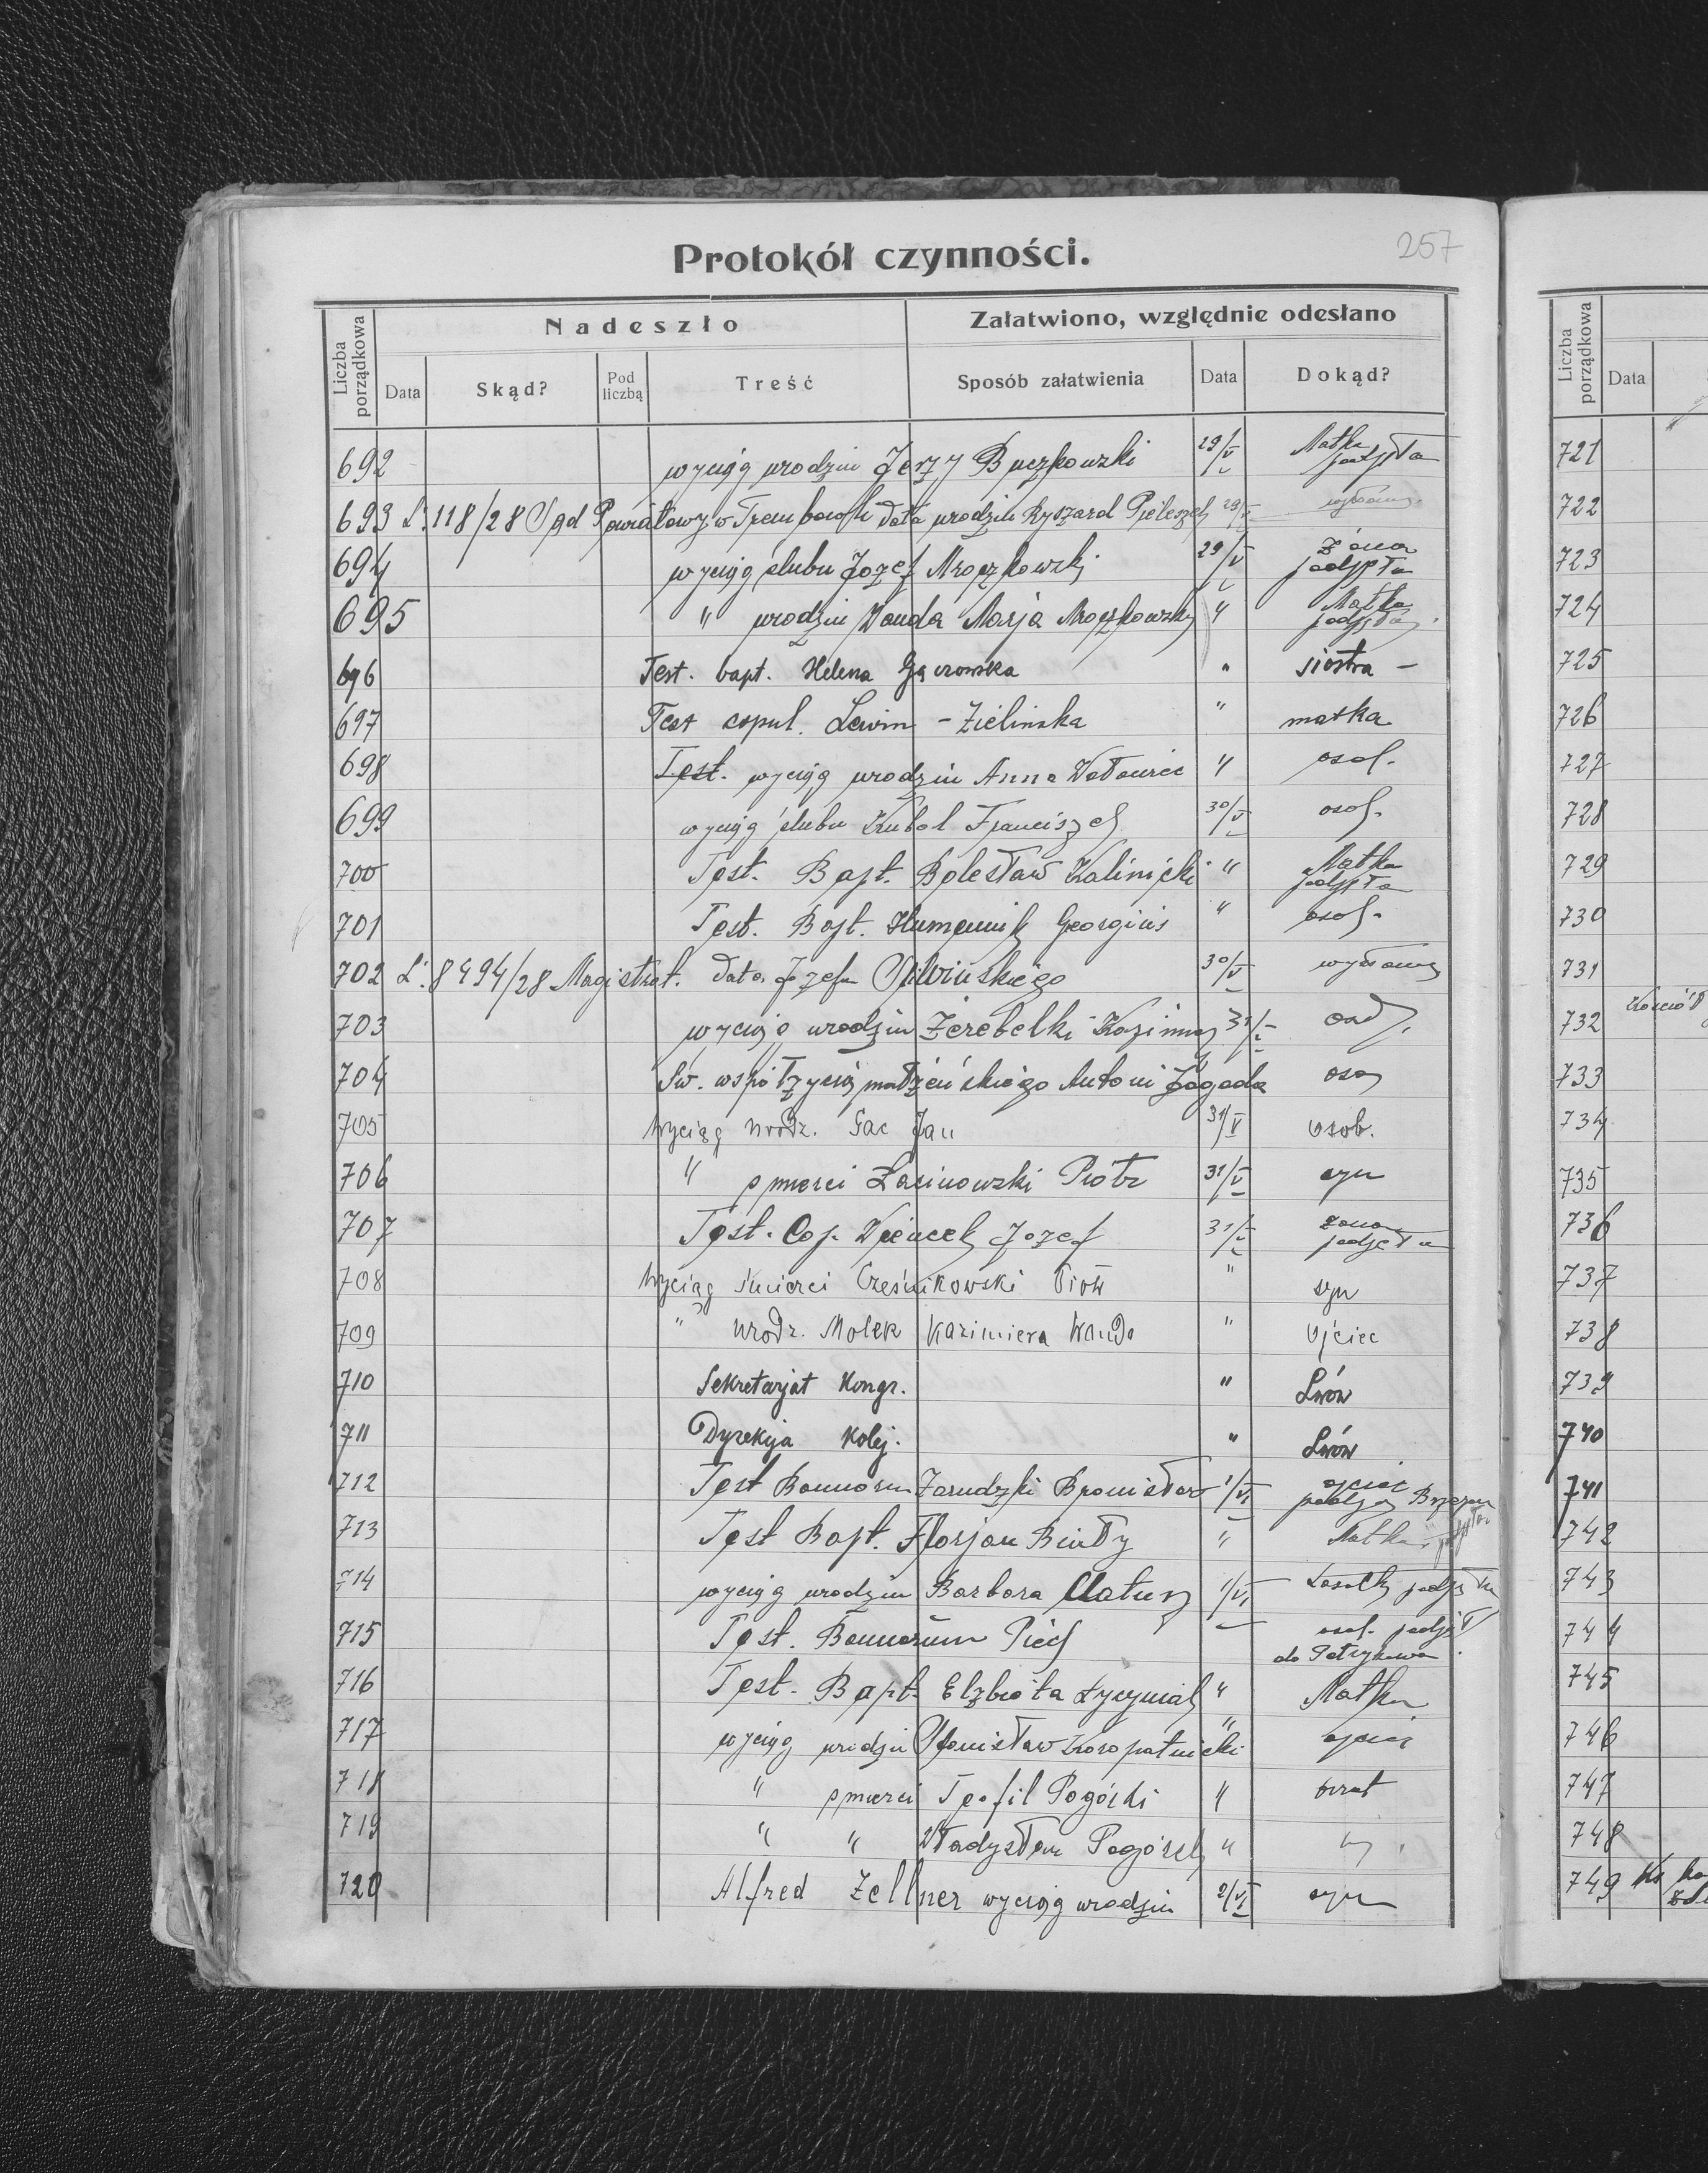 257
Protokół czynności.
Liczba porządkowa
Nadeszło
Załatwiono, względnie odesłano
Data
Skąd?
Pod liczbą
Treść
Sposób załatwienia
Data
Dokąd?
692 wyciąg urodzin Jerzy Buczkowski 29/V Matka podjęła
693 L. 118/28 Sąd Powiatowy w Trembowli Data urodzin Ryszard 29/V
694 wyciąg ślubu Jozef Mroczkowski 29/V żona podjęła
695 " urodzin Wanda Marja Mroczkowska " Matka podjęła
696 Test. bapt. Helena " siostra -
697 Test copul. Lewin - Zielinska " matka
698 Test. wyciąg urodzin Anna " osob.
699 wyciąg ślubu Kubal Franciszek 30/V osob.
700 Test. Bapt. Bolesław Kalinicki " Matka podjęła
701 Test. Bapt. Humeniuk Georgius " osob.
702 L. 8494/28 Magistrat. Data Jozefa 30/V wysłano
703 wyciąg urodzin Żerebelki Kazimierz 31/V osob.
704 Św. współżycia małżeńskiego Antoni Jagoda oso
705 Wyciąg urodz. Gac Jan 31/V osob.
706 " śmierci Łasinowski Piotr 31/V syn
707 Test. Cop. Wiencek Jozef 31/V żona podjęła
708 Wyciąg śmierci Cześnikowski Piotr " syn
709 " urodz. Molek Kazimiera Wanda " Ojciec
710 Sekretarjat Kongr. " Lwów
711 Dyrekcja Kolej. " Lwów
712 Test Bannorum Zarudzki Bronisław 1/VI ojciec
713 Test Bapt. Florjan Biały " Matka
714 wyciąg urodzin Barbara 1/VI
715 Test. Bannorum Piech osob. podjął
do Petrykowa
716 Test. Bapt. Elżbieta " Matka
717 wyciąg urodzin Stanisław Koropatnicki " ojciec
718 " śmierci Teofil Pogórski " brat
719 " " Władysław " "
720 Alfred Zellner wyciąg urodzin 2/VI syn
Liczba porządkowa
Data
721
722
723
724
725
726
727
728
729
730
731
732
733
734
735
736
737
738
739
740
741
742
743
744
745
746
747
748
749